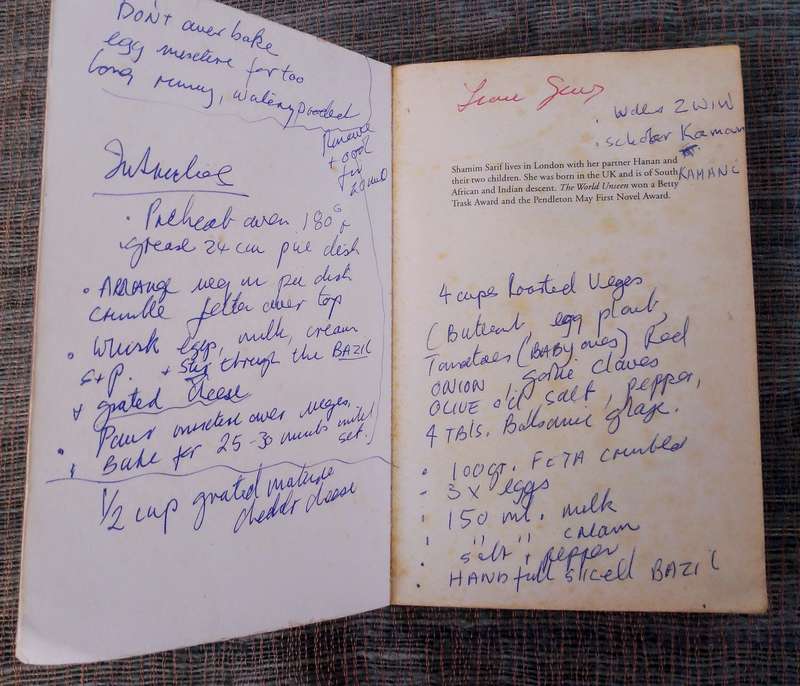 DON'T over bake
egg mixture for too
long runny, watery
Remove
food
for
20
Preheat oven 180°
grease 24 cm pie dish
• ARRANGE veg in pie dish
crumble fetta over top
• Whisk eggs, milk, cream
s+p. + through the BAZIL
+ grated cheese
• Pour mixture over veges,
BAKE for 25-30 minutes until
set.
1/2 cup grated mature
cheddr cheese
Shamim Sarif lives in London with her partner Hanan and
their two children. She was born in the UK and is of South
African and Indian descent. The World Unseen won a Betty
Trask Award and the Pendleton May First Novel Award.
KAMANC
4 cups Roasted Veges
(Buternut egg plant,
Tomatoes (BABY ones) Red
ONION, garlic cloves
OLIVE oil salt, pepper,
4 TBls. Balsamic glaze.
• 100gr. FETA crumbled
- 3 x eggs
• 150 ml. milk
" " cream
• salt + pepper
• HANDfull sliced BAZIL